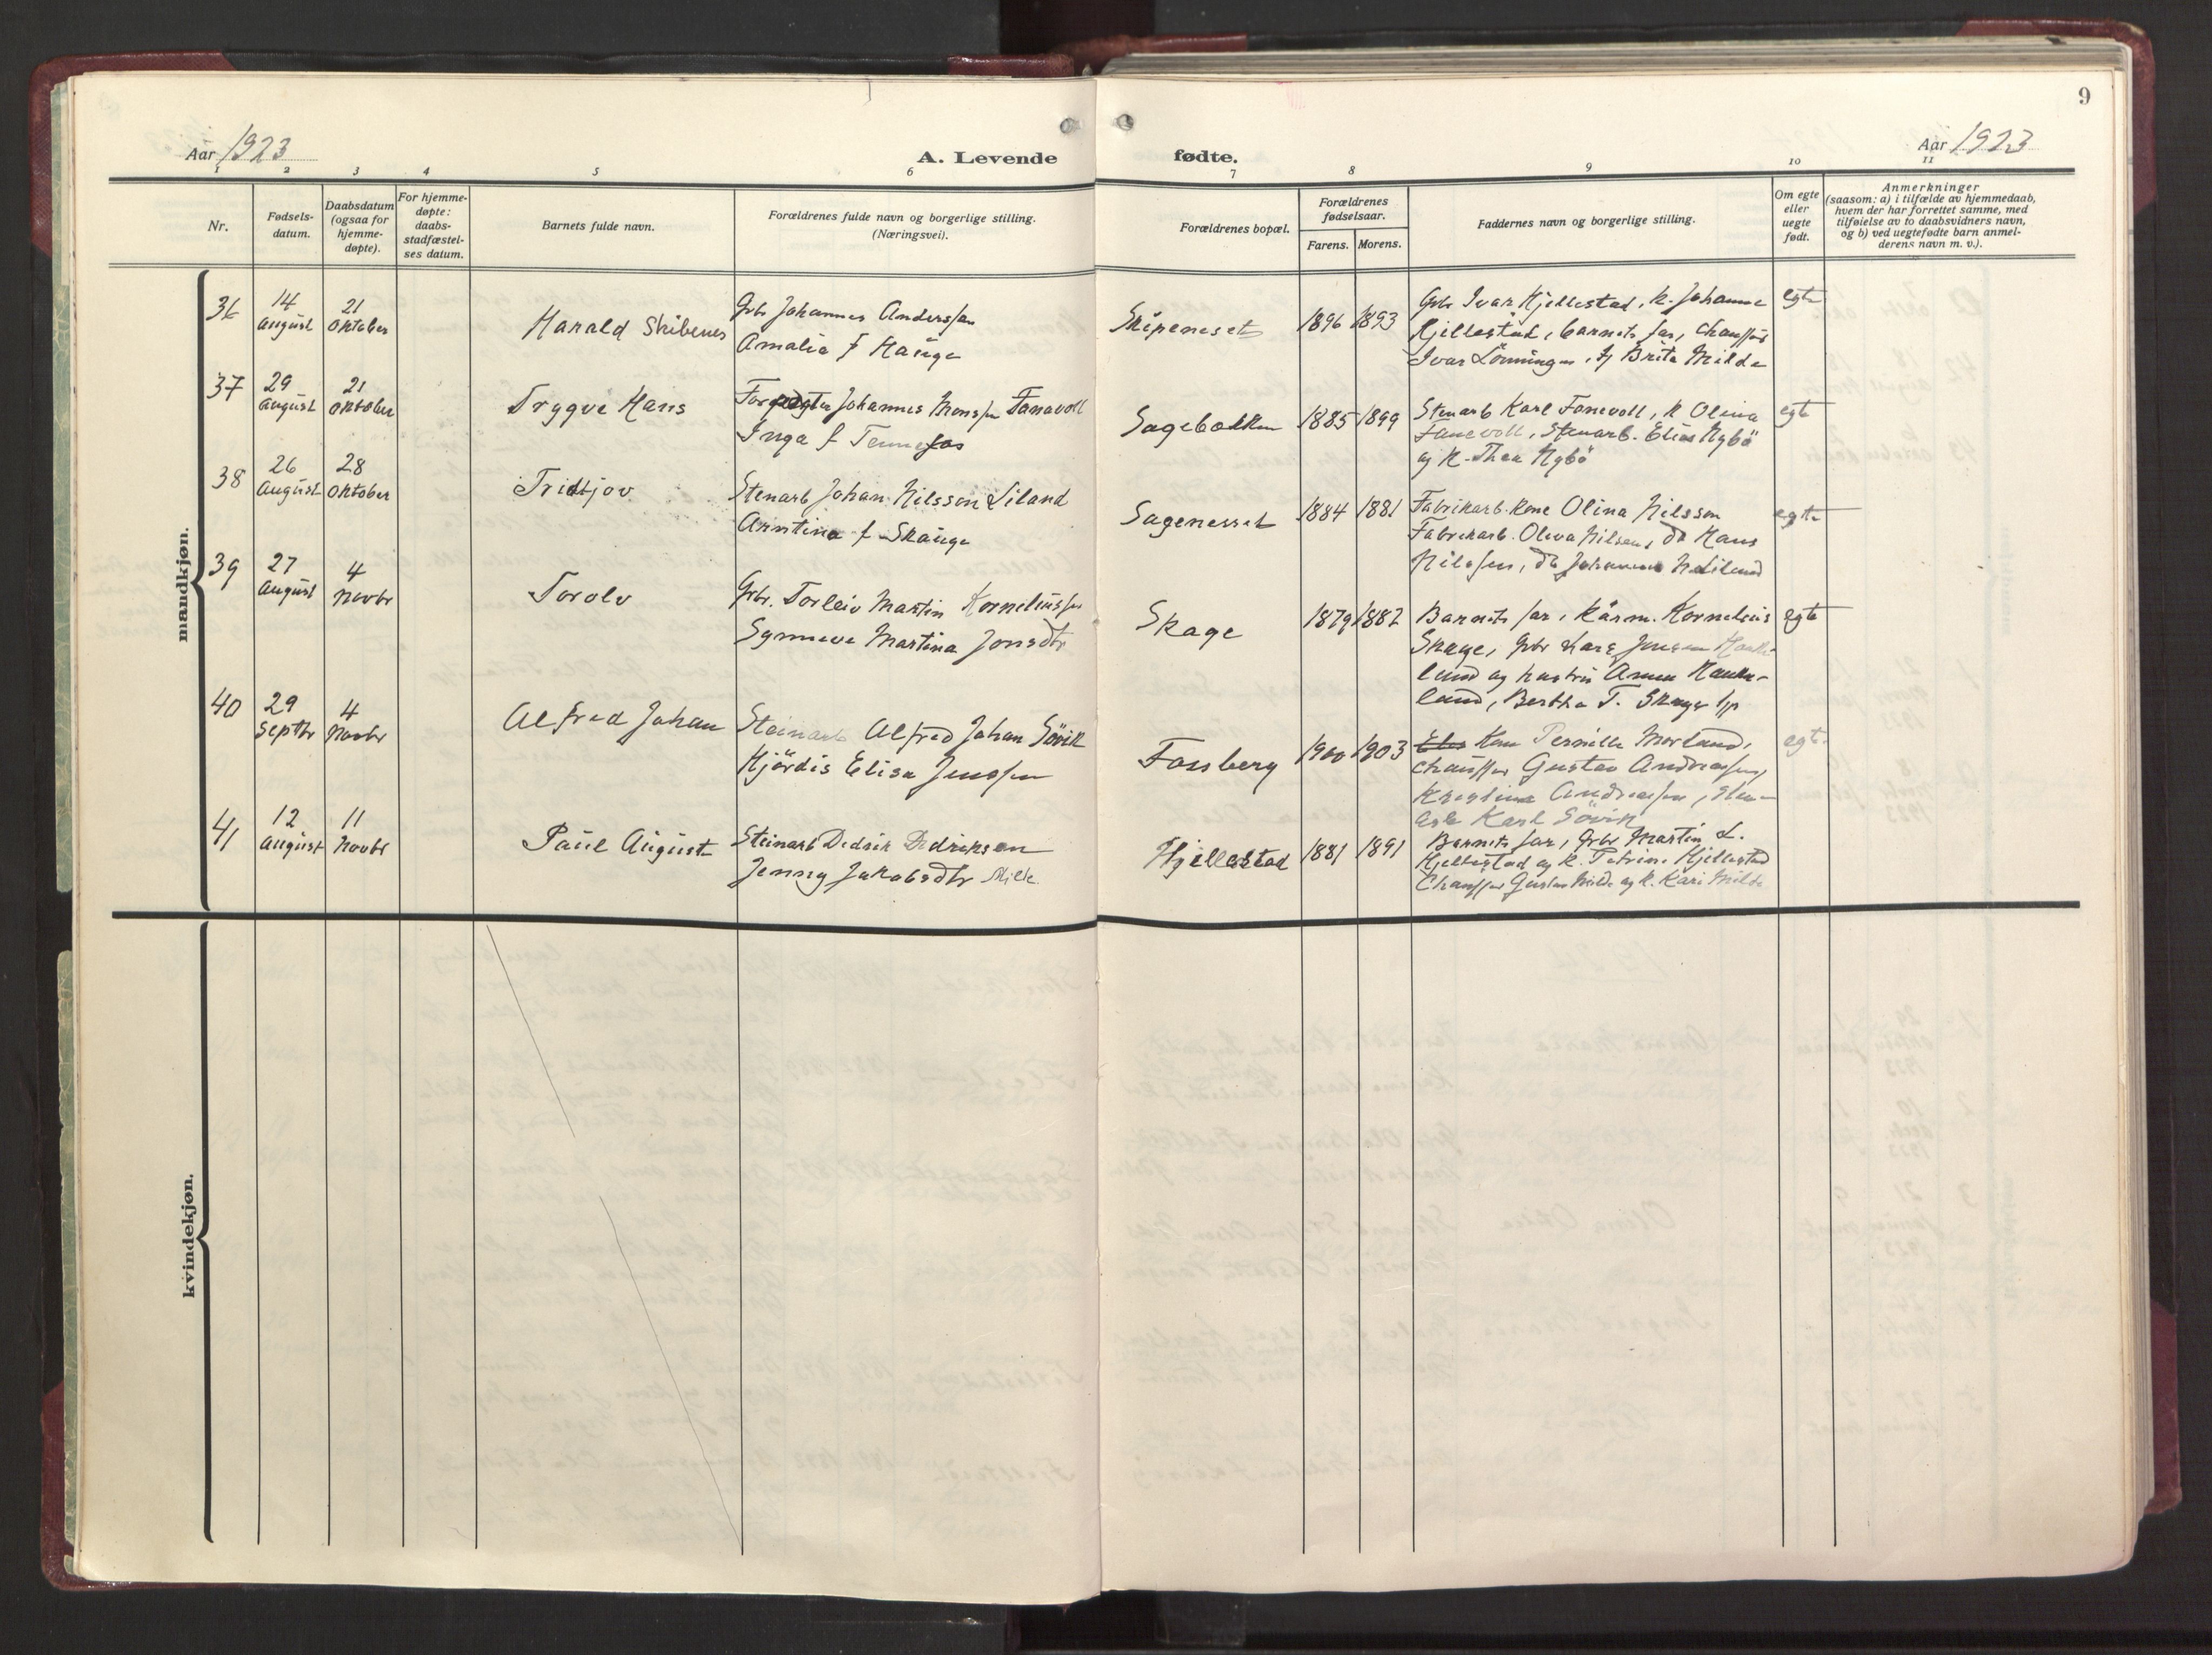 9
Aar 1923
A. Levende
fødte.
Aar 1923
1 2 3 4 5 6 7 8 9 10 11
Nr.
Fødsels-
datum.
Daabsdatum
(ogsaa for
hjemme-
døpte).
For hjemme-
døpte:
daabs-
stadfæstel-
ses datum.
Barnets fulde navn.
Forældrenes fulde navn og borgerlige stilling.
(Næringsvei).
Forældrenes bopæl.
Forældrenes
fødselsaar.
Farens. Morens.
Faddernes navn og borgerlige stilling.
Om egte
eller
uegte
født.
Anmerkninger
(saasom: a) i tilfælde av hjemmedaab,
hvem der har forrettet samme, med
tilføielse av to daabsvidners navn,
og b) ved uegtefødte barn anmel-
derens navn m. v.).
mandkjøn.
36
14
august
21
oktober
Harald Skibenes
Grb Johannes Anderssen
Amalia f Hauge
Skipeneset
1896 1893
Grb Ivar Hjellestad, k. Johanne
Hjellestad, barnets far, chauffør
Ivar Lönningen, Brita Milde
egte
37
29
august
21
oktober
Trygve Hans
Johannes Monssen Fanavoll
Inga f Tennefos
Sagebakken
1885 1899
Stenarb Karl Fanevoll, k Olina
Fanevoll, Stenarb. Elias Nybö
og k. Thea Nybö
egte
38
26
august
28
oktober
Fridtjov
Stenarb Johan Nilsson Liland
Arntina f Skauge
Sagenesset
1884 1881
Fabrikarb. kone Olina Nilsson
Fabrikarb. Oliva Nilsen, do Hans
Nilssen, do Johanna N Liland
egte
39
27
august
4
novbr
Torolv
Grbr. Torleiv Martin Korneliussen
Synneve Martina Jonsdtr
Skage
1879 1882
Barnets far, kårm. Kornelius
Skage, Grbr Lars Jensen Hauke-
land og hustru Anna Hauke-
land, Bertha T. Skage
egte
40
29
septbr
4
novbr
Alfred Johan
Steinarb Alfred Johan Sövik
Hjördis Elisa Jenssen
Fossberg
1900 1903
Kone Pernille Morland,
chauffør Gustav Andreassen,
Kristine Andreassen, Sten-
arb Karl Sövik
egte
41
12
august
11
novbr
Paul August
Steinarb Dedrik Didriksen
Jenny Jakobsdtr Milde
Hjellestad
1881 1891
Barnets far, Grbr Martin L.
Hjellestad og k. Petrine Hjellestad
Chauffør Gustav Milde og k. Kari Milde
kvindekjøn.